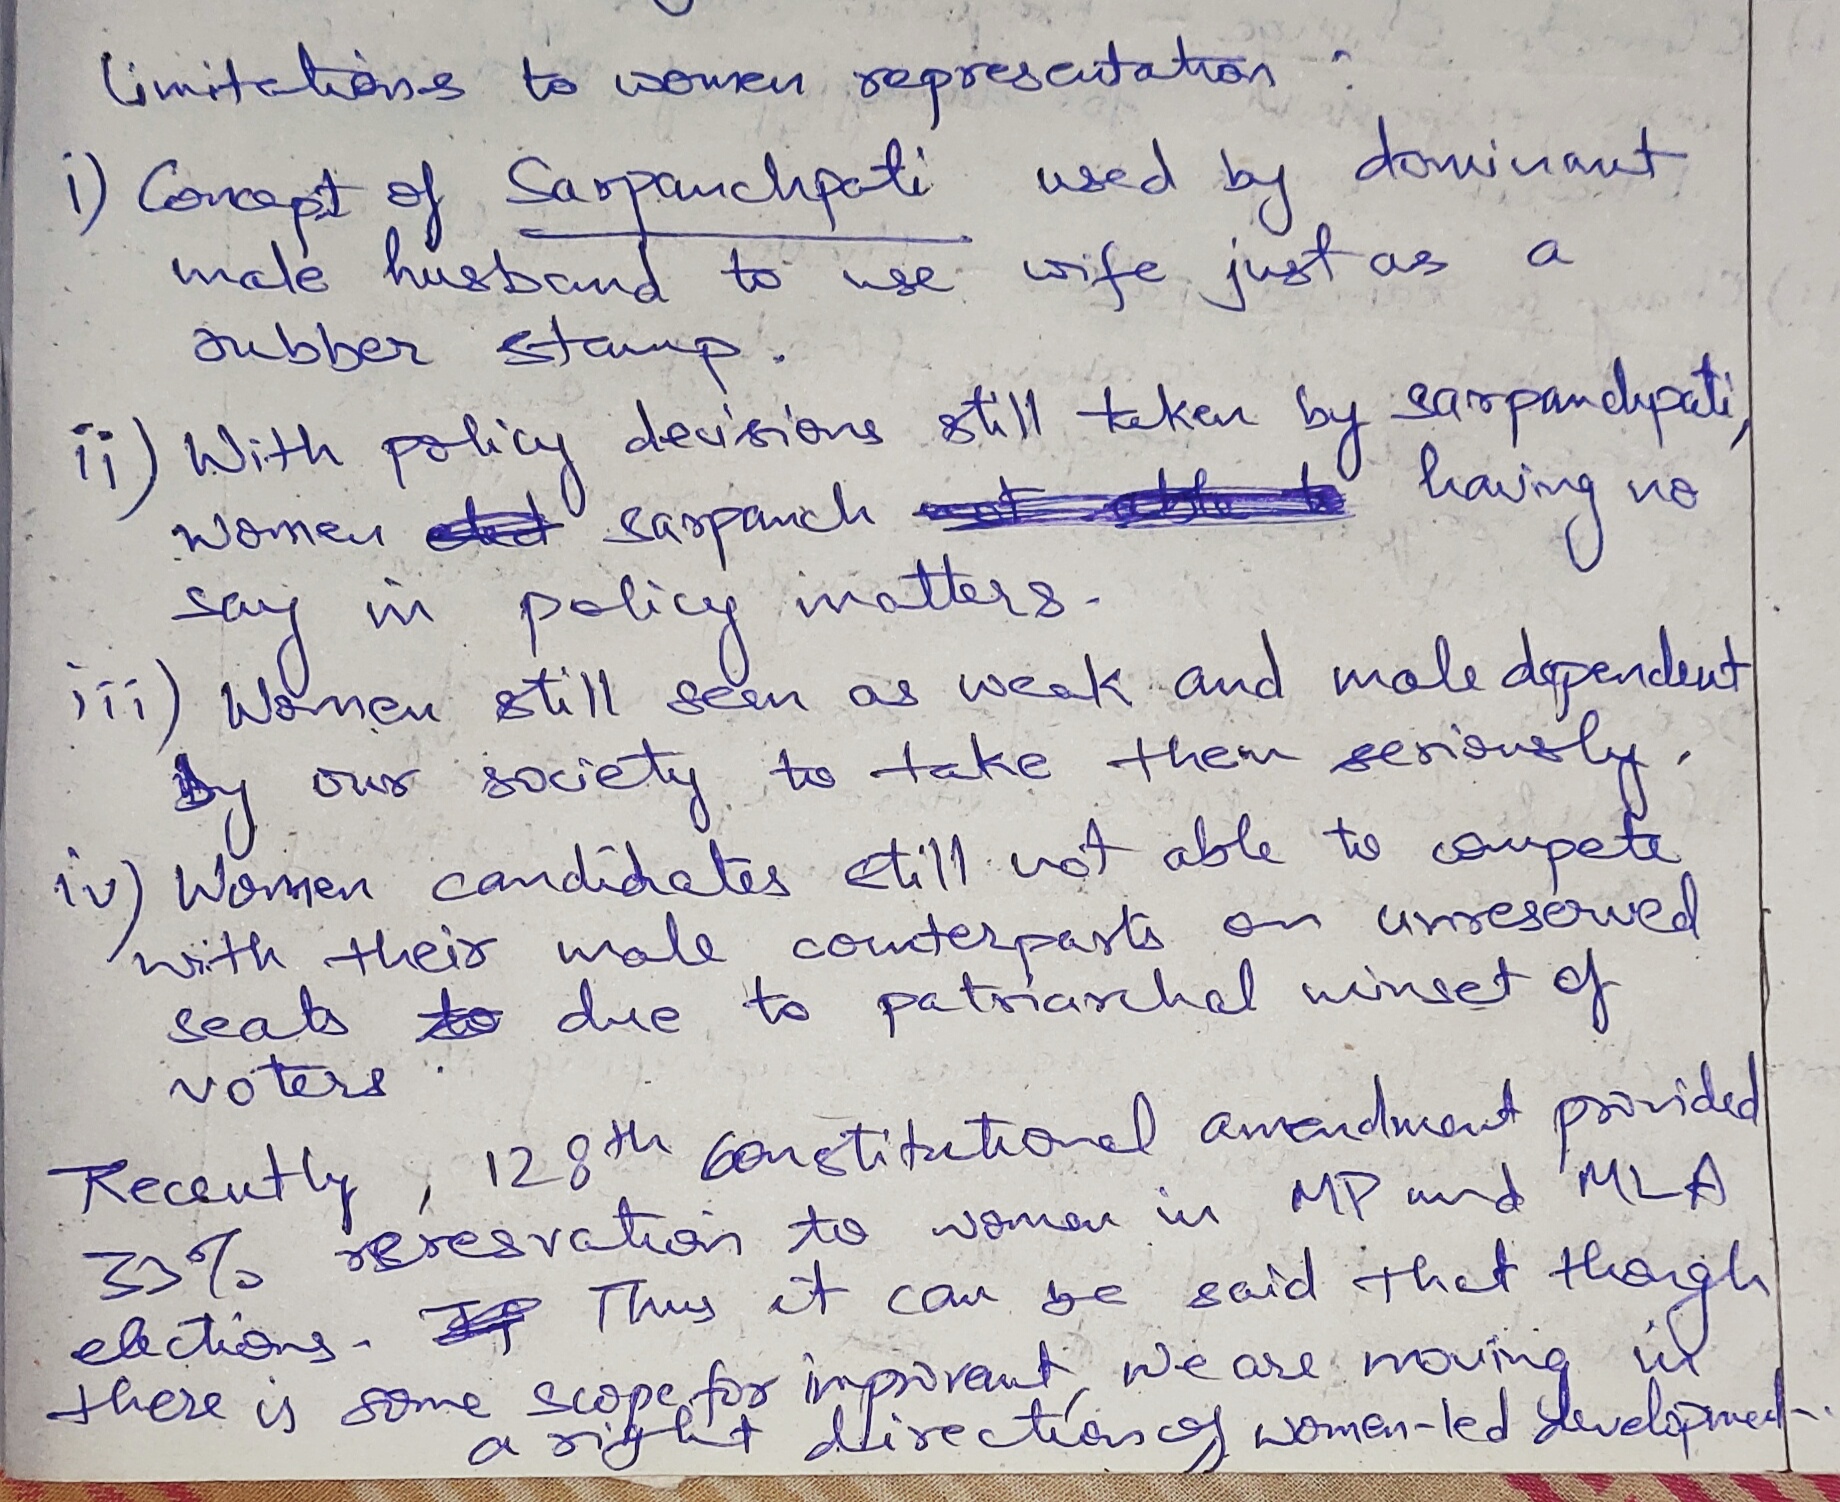 Limitations to women representation :
i) Concept of Sarpanchpati used by dominant
male husband to use wife just as a
rubber stamp.
ii) With policy decisions still taken by sarpanchpati,
women sarpanch having no
say in policy matters.
iii) Women still seen as weak and male dependent
by our society to take them seriously.
iv) Women candidates still not able to compete
with their male counterparts on unreserved
seats to due to patriarchal minset of
voters.
Recently, 128th Constitutional amendment provided
33% reresvation to women in MP and MLA
elections. Thus it can be said that though
there is some scope for improvent, we are moving in
a right direction of women-led development.